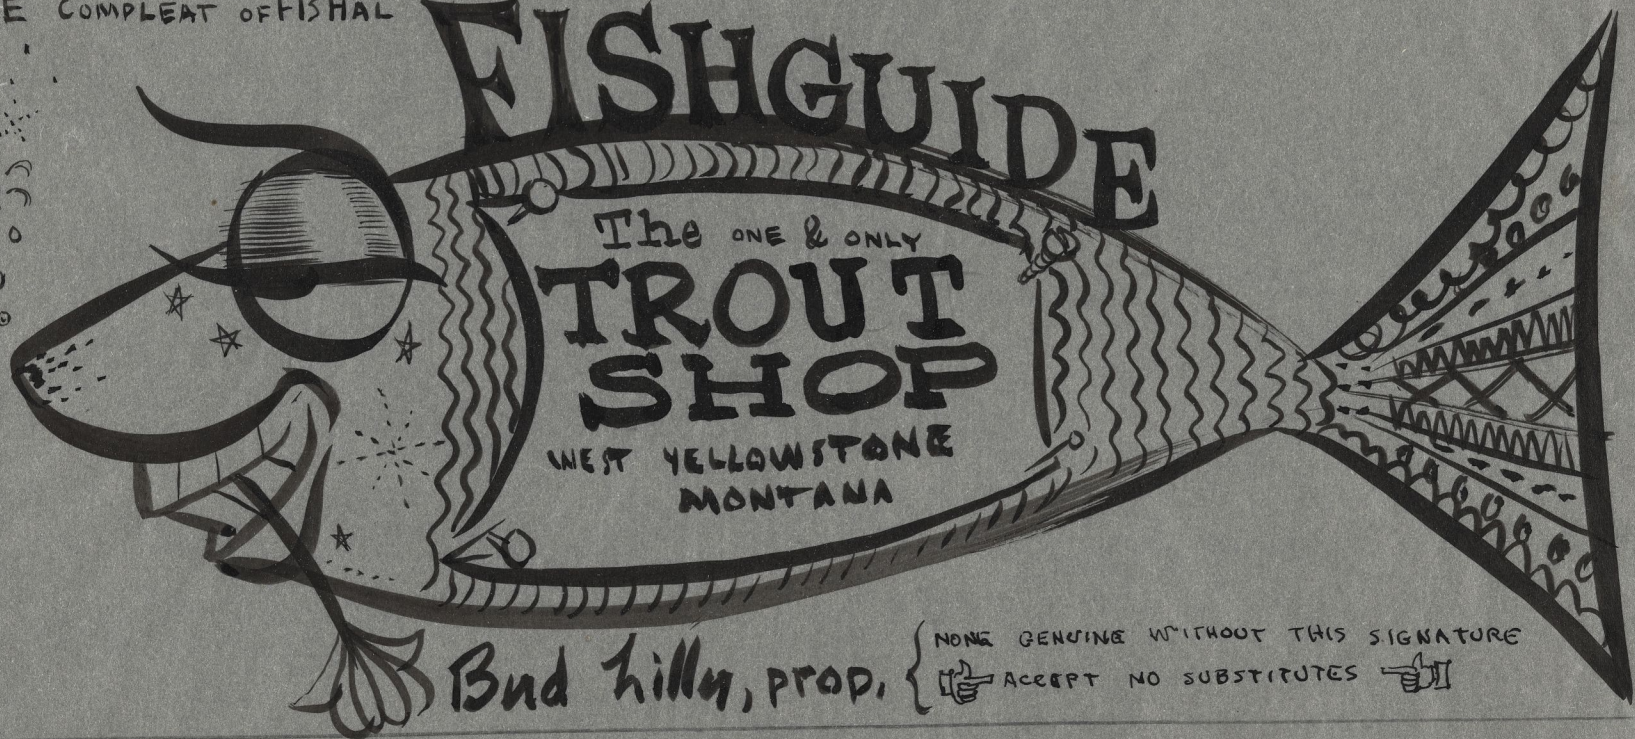 E COMPLEAT OFFISHAL
FISHGUIDE
The ONE & ONLY
TROUT
SHOP
WEST YELLOWSTONE
MONTANA
Bud Lilly, prop.
NONE GENUINE WITHOUT THIS SIGNATURE
ACCEPT NO SUBSTITUTES